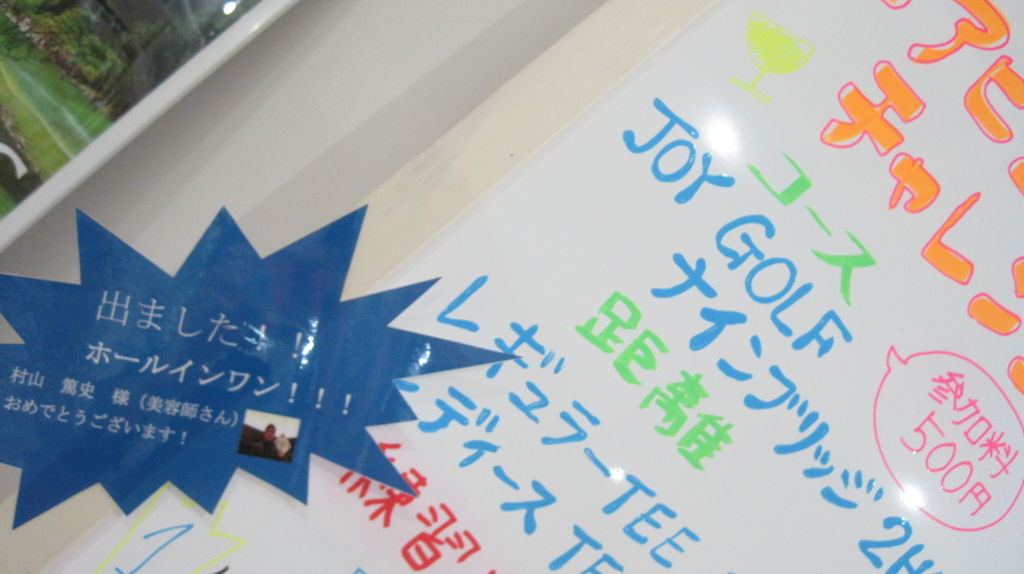 チャレン
コース
JOY GOLF
ナインブリッジ
参加料
500円
距離
レギュラーTEE
ディース
練習
出ました!!
ホールインワン!!!
村山 篤史 様(美容師さん)
おめでとうございます!